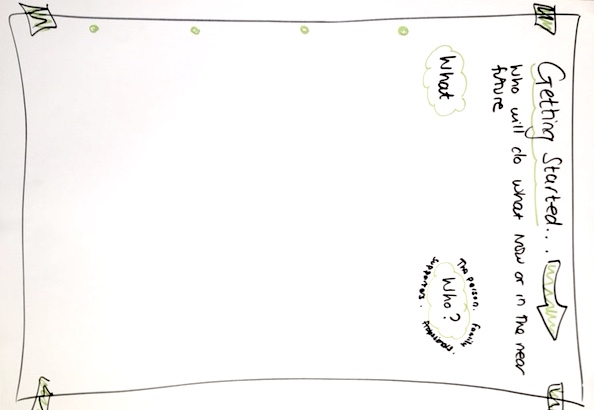 Getting Started...
Who will do what now or in the near
future
What
Who?
The person. Family.
Supporters.